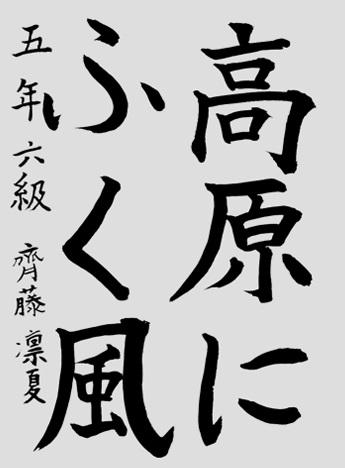 高原に
ふく風
五年六級 齊藤凛夏